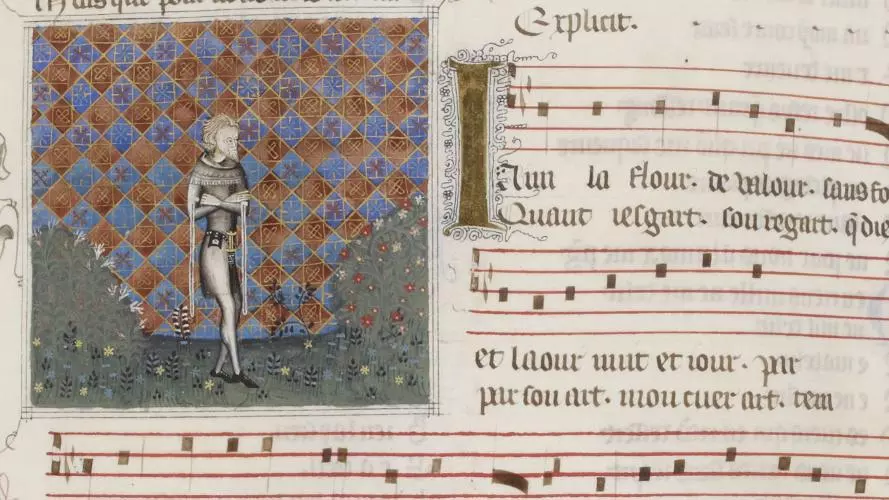 Explicit.
Iaim la flour. de valour. sans fo
Quant iesgart. son regart. q̃ die
et laour nuit et iour. par
par son art. mon cuer art. tem